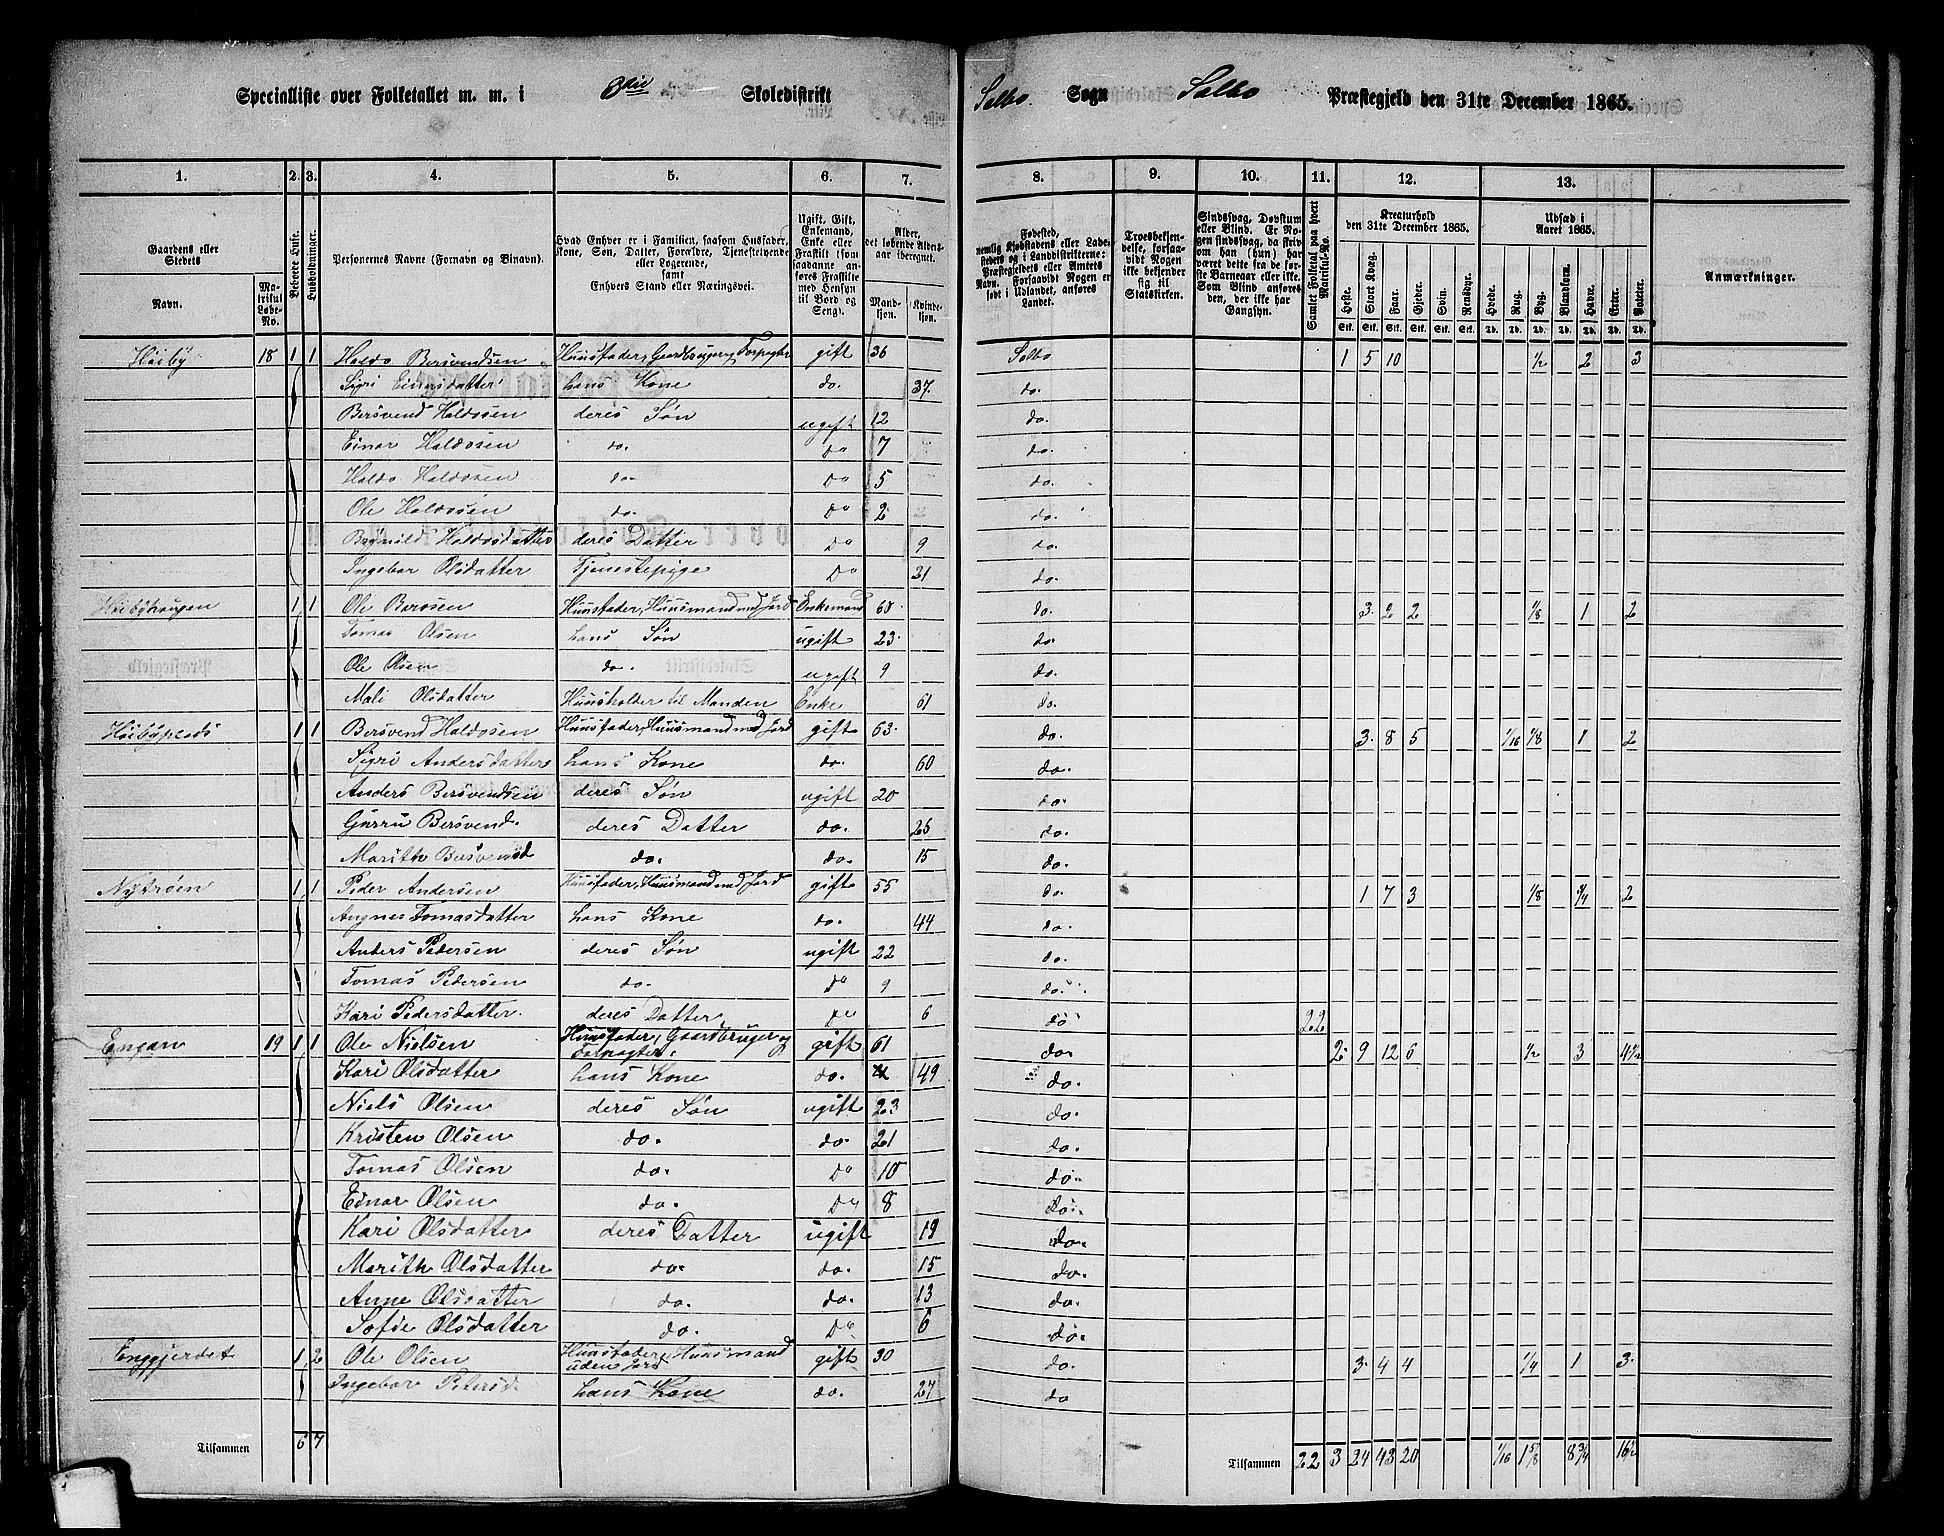 Specialliste over Folketallet m. m. i 3die Skoledistrikt Selbo Sogn Selbo Præstegjeld den 31te December 1865.
1. 2. 3. 4. 5. 6. 7. 8. 9. 10. 11. 12. 13.
Gaardens eller Stedets Navn. Matrikul Løbe-No. Beboede Huse. Husholdninger. Personernes Navne (Fornavn og Binavn). Hvad Enhver er i Familien, saasom Husfader, Kone, Søn, Datter, Forældre, Tjenestetyende eller Logerende, samt Enhvers Stand eller Næringsvei. Ugift, Gift, Enkemand, Enke eller Fraskilt (som saadanne anføres Fraskilte med Hensyn til Bord og Seng). Alder, det løbende Aldersaar iberegnet. Mandkjøn. Kvindekjøn. Fødested, nemlig Kjøbstadens eller Ladestedets og i Landdistrikterne: Præstegjeldets eller Amtets Navn. Forsaavidt Nogen er født i Udlandet, anføres Landet. Troesbekjendelse, forsaavidt Nogen ikke bekjender sig til Statskirken. Sindssvag, Døvstum eller Blind. Er Nogen sindssvag, da skrives om han (hun) har været dette fra de første Barneaar eller ikke. Som Blind anføres den, der ikke har Gangsyn. Samlet Folketal paa hvert Matrikul-No. Kreaturhold den 31te December 1865. Udsæd i Aaret 1865. Anmærkninger.
Heste. Stort Kvæg. Faar. Gjeder. Svin. Rensdyr. Hvede. Rug. Byg. Blandkorn. Havre. Erter. Poteter.
Stk. Stk. Stk. Stk. Stk. Stk. Td. Td. Td. Td. Td. Td. Td.
Høiby 18 1 1 Haldo Bersvendsen Huusfader, Gaardbruger, Forpagter gift 36 Selbo 1 5 10 1/2 2 3
Sigri Einarsdatter hans Kone do. 37. do.
Bersvend Haldosen deres Søn ugift 12 do.
Einar Haldosen do. do 7 do.
Haldo Haldosen do. do 5 do.
Ole Haldosen do. do 2 do.
Brynild Haldosdatter deres Datter do 9 do.
Ingebor Olsdatter Tjenestepige do 31 do.
Høibyhaugen 1 1 Ole Berosen Huusfader, Huusmand med Jord Enkemand do. 3. 2 2 1/8 1 2
Tomas Olsen hans Søn ugift 23. do.
Ole Olsen do. ugift 9 do.
Mali Olsdatter Huusholder til Manden Enke 61 do.
Høibyplads 1 1 Bersvend Haldosen Huusfader, Huusmand med Jord gift 63. do. 3. 8 5 1/16 1/8 1 2
Sigri Andersdatter hans Kone do. 60 do.
Anders Bersvendsen deres Søn ugift 20 do.
Gurru Bersvend. deres Datter do. 25 do.
Marith Bersvensd do. do. 15 do.
Nytrøen 1 1 Peder Andersen Huusfader, Huusmand med Jord gift 55 do. 1 7 3 1/8 3/4 2
Angnes Tomasdatter hans Kone do. 44 do.
Anders Pedersen deres Søn ugift 22 do.
Tomas Pedersen do. do 9 do.
Kari Pedersdatter. deres Datter do 6 do 22
Engan 19 1 1 Ole Nielsen Huusfader, Gaardbruger og gift 61 do. 2. 9 12 6 1/2 3 4 1/2
Kari Olsdatter hans Kone do. 49 do.
Niels Olsen deres Søn ugift 23 do.
Kristen Olsen do. do. 21 do.
Tomas Olsen do. do 10 do.
Einar Olsen do. do 8 do.
Kari Olsdatter deres Datter ugift 19 do.
Marith Olsdatter do. do. 15 do.
Anne Olsdatter do. do. 13 do.
Sofie Olsdatter do. do 6 do.
Enggjerdet 1 2 Ole Olsen Huusfader, Huusmand uden Jord gift 30 do. 3. 4 4 1/4 1 3.
Ingebor Petersd. hans Kone do. 27 do
Tilsammen 6 7 Tilsammen 22 3 24 43 20 1/16 1 5/8 8 3/4 16 1/2